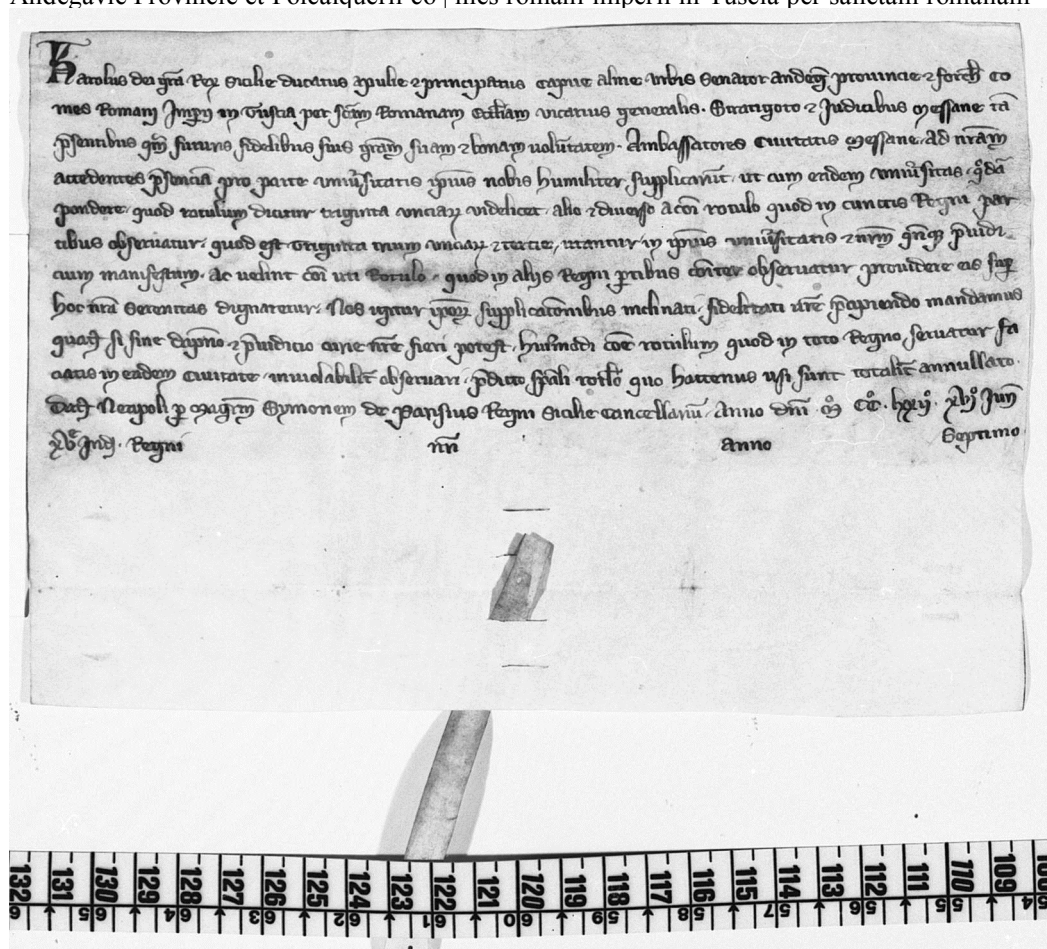 Andegavie Provincie et Folcalquerii co | mes romani imperii in Tuscia per sanctam romanam
Karolus dei gra Rex Sicilie ducatus apulie et principatus capue alme Urbis Senator andeg provincie et forch Co
mes Romanj Imperij in Tuscia per scam Romanam eccliam vicarius generalis. Straticoto et Judicibus Messane ta
psentibus qm futuris fidelibus suis gram suam et bonam voluntatem. Ambassatores civitatis Messane ad nram
accedentes psencia pro parte univsitatis ipius nobis humiliter supplicarut ut cum eadem univsitas qda
pondere quod rotulum dicitur triginta unciaR videlicet alio et diverso a coi rotulo quod in cunctis Regni par
tibus observatur quod est triginta trium unciaR et tercie, utantur in ipius univsitatis et nrm pviudi
cium manifestum. ac velint coi uti Rotulo quod in aliis Regni ptibus coiter observatur providere eis sup
hoc nra Serenitas dignaretur. Nos igitur ipoR supplicatonibus inclinati fidelitati vre pcipiendo mandamus
quat si sine dapno et pviudicio curie nre fieri potest. huiusmodi coe rotulum quod in toto Regno servatur fa
ciatis in eadem civitate inviolabilit observari pdicto spali rotlo quo hactenus usi sunt totalit annullato.
Dat Neapoli p Magrm Symonem de Parisius Regni Sicilie cancellariu Anno dni M CC lxxij xvj Junij
xv Ind. Regni nri anno Septimo
132 131 130 129 128 127 126 125 124 123 122 121 120 119 118 117 116 115 114 113 112 111 110 109
65 64 63 62 61 60 59 58 57 56 55 54